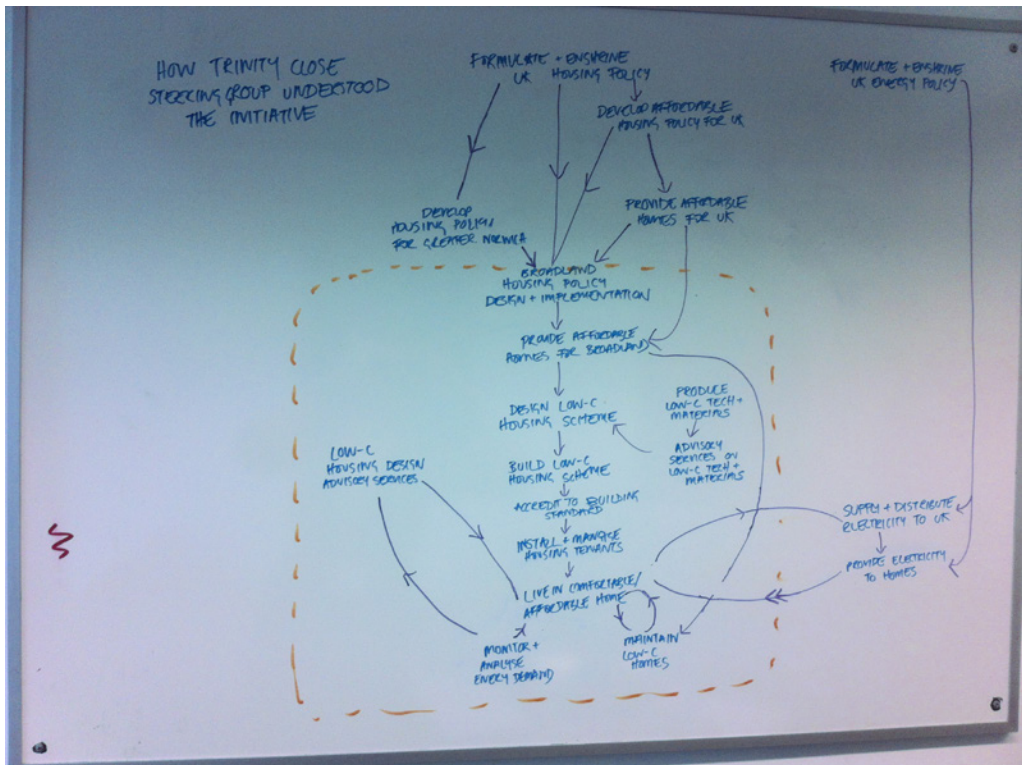 HOW TRINITY CLOSE
STEERING GROUP UNDERSTOOD
THE INITIATIVE
FORMULATE + ENSHRINE
UK HOUSING POLICY
FORMULATE + ENSHRINE
UK ENERGY POLICY
DEVELOP AFFORDABLE
HOUSING POLICY FOR UK
DEVELOP
HOUSING POLICY
FOR GREATER NORWICH
PROVIDE AFFORDABLE
HOMES FOR UK
BROADLAND
HOUSING POLICY
DESIGN + IMPLEMENTATION
PROVIDE AFFORDABLE
HOMES FOR BROADLAND
DESIGN LOW-C
HOUSING SCHEME
PRODUCE
LOW-C TECH +
MATERIALS
ADVISORY
SERVICES ON
LOW-C TECH +
MATERIALS
LOW-C
HOUSING DESIGN
ADVISORY SERVICES
BUILD LOW-C
HOUSING SCHEME
ACCREDIT TO BUILDING
STANDARD
INSTALL + MANAGE
HOUSING TENANTS
SUPPLY + DISTRIBUTE
ELECTRICITY TO UK
PROVIDE ELECTRICITY
TO HOMES
LIVE IN COMFORTABLE/
AFFORDABLE HOME
MONITOR +
ANALYSE
ENERGY DEMAND
MAINTAIN
LOW-C
HOMES